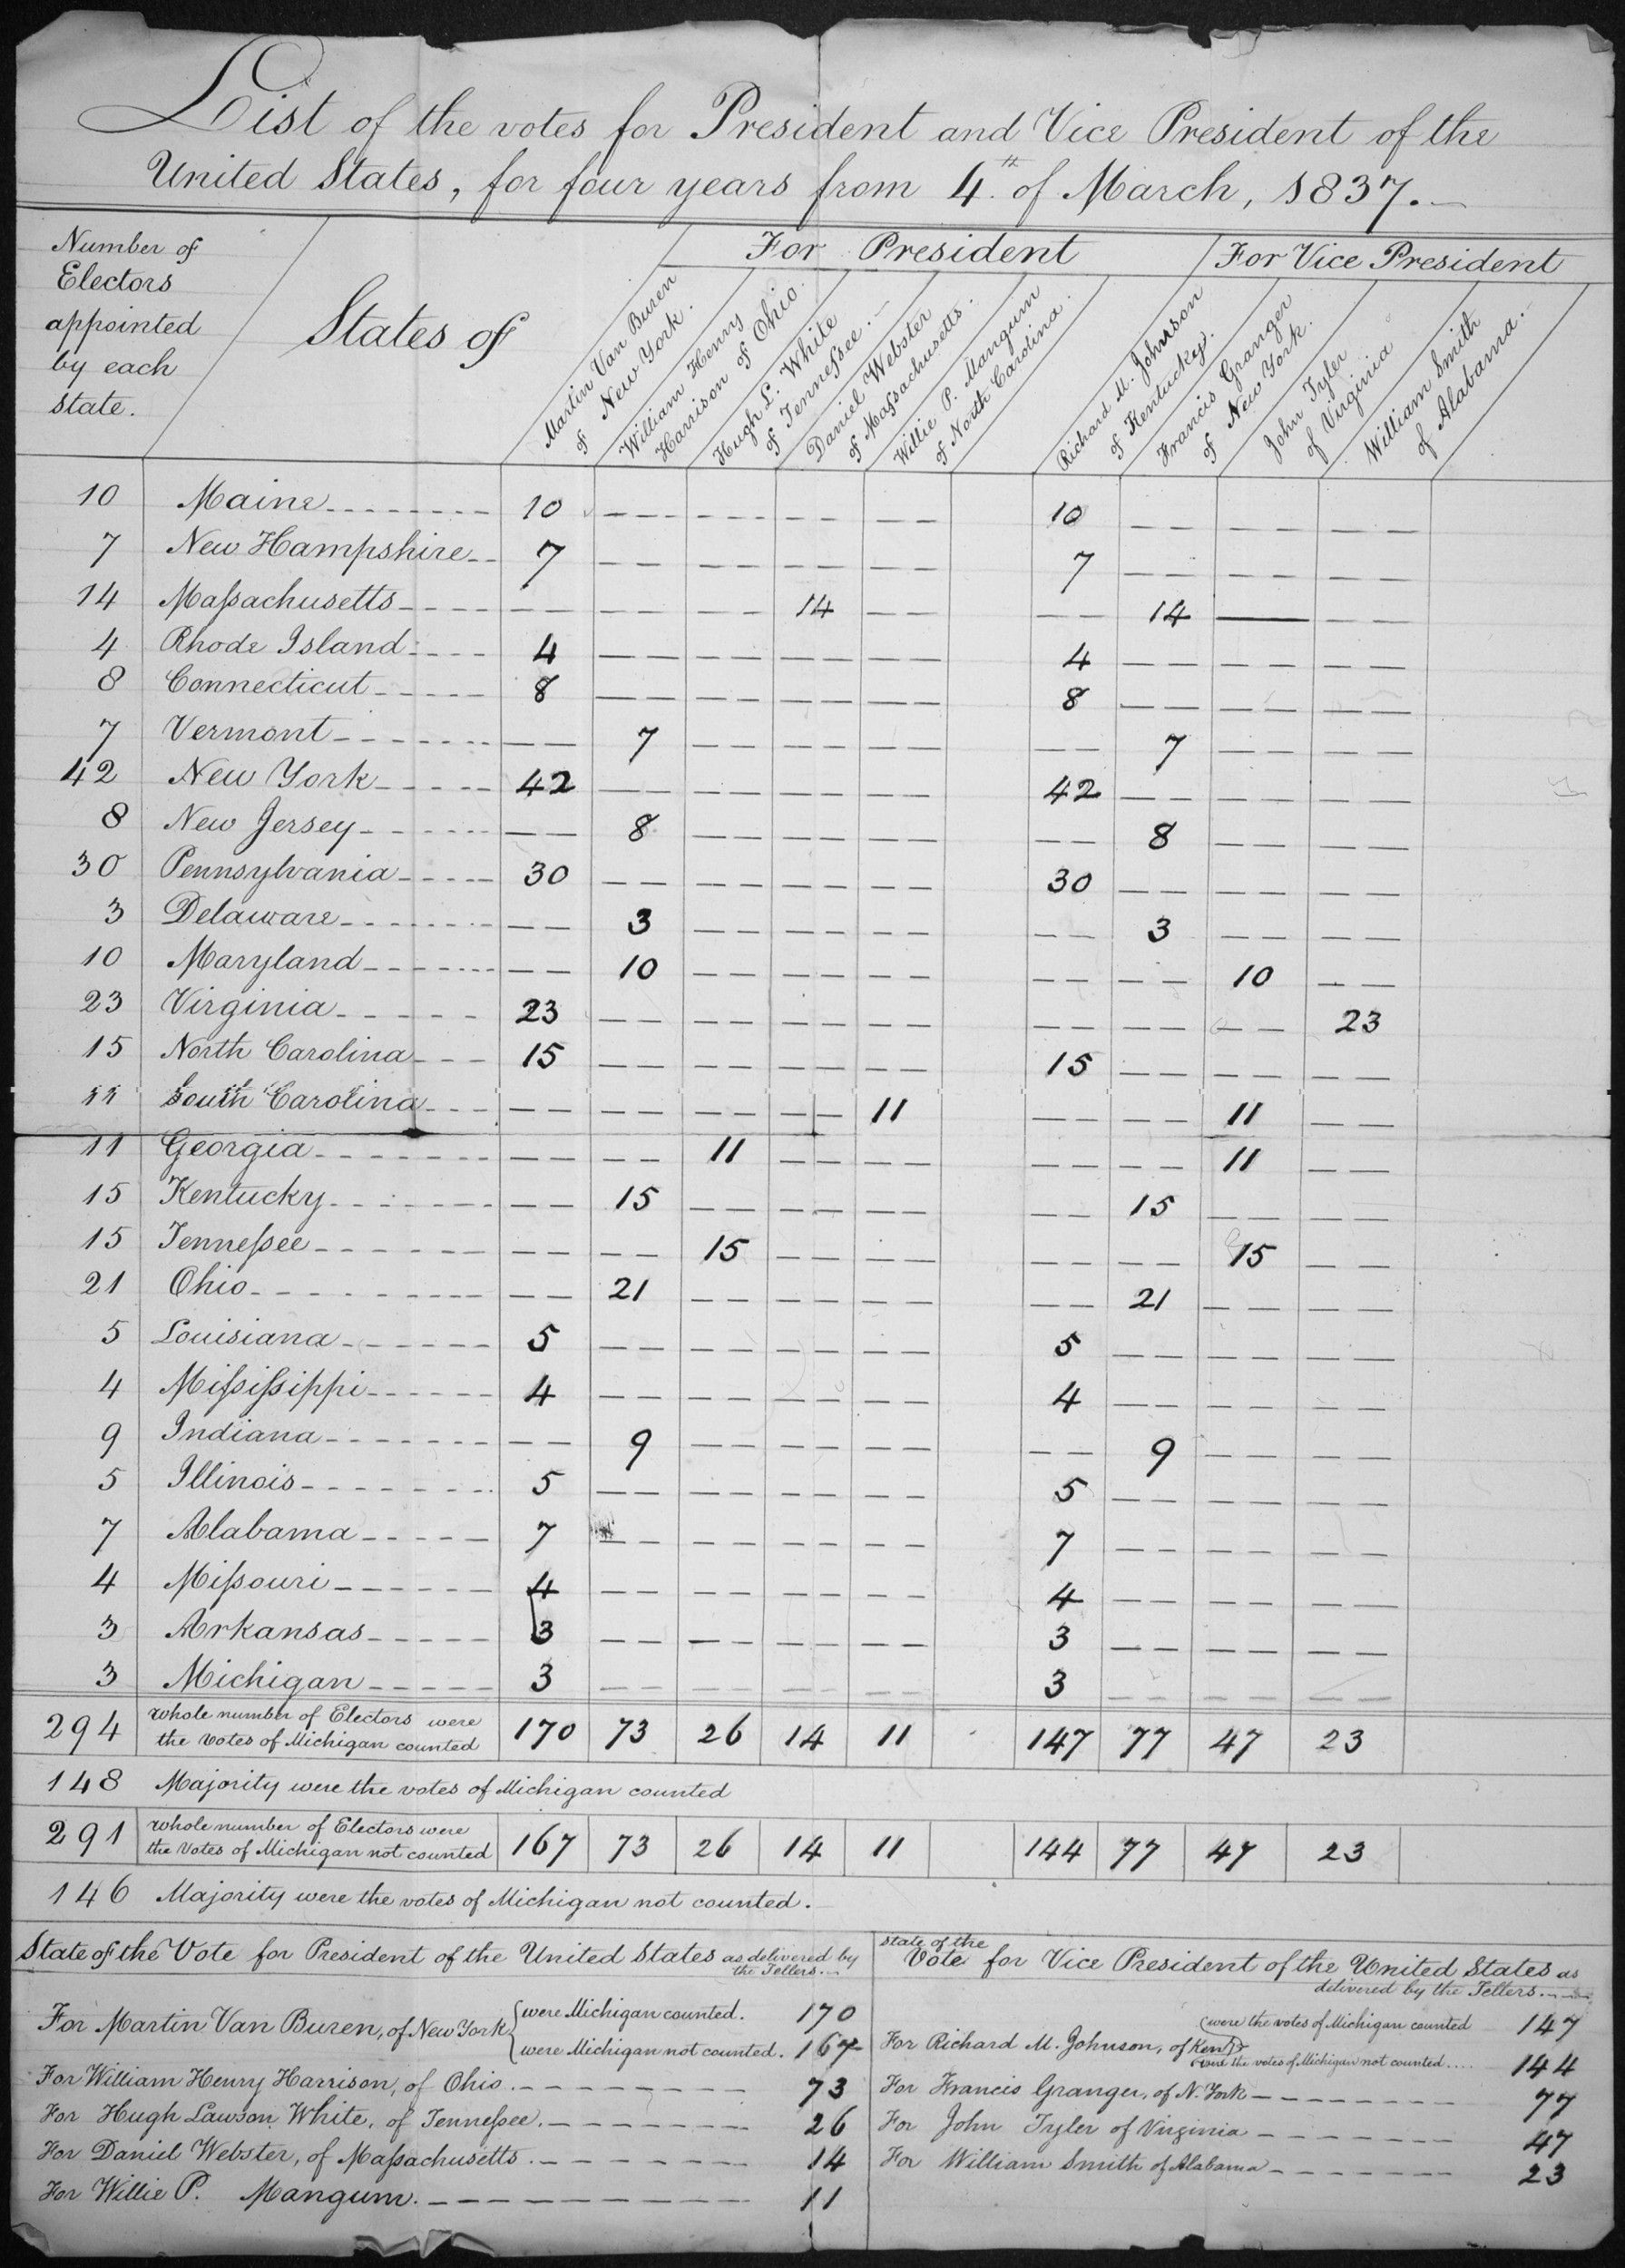 List of the votes for President and Vice President of the
United States, for four years from 4th of March, 1837.
Number of
Electors
appointed
by each
state.
States of
For President
For Vice President
Martin Van Buren
of New York.
William Henry
Harrison of Ohio.
Hugh L. White
of Tennessee.
Daniel Webster
of Massachusetts.
Willie P. Mangum
of North Carolina.
Richard M. Johnson
of Kentucky.
Francis Granger
of New York.
John Tyler
of Virginia
William Smith
of Alabama.
10 Maine 10 10
7 New Hampshire 7 7
14 Massachusetts 14 14
4 Rhode Island 4 4
8 Connecticut 8 8
7 Vermont 7 7
42 New York 42 42
8 New Jersey 8 8
30 Pennsylvania 30 30
3 Delaware 3 3
10 Maryland 10 10
23 Virginia 23 23
15 North Carolina 15 15
11 South Carolina 11 11
11 Georgia 11 11
15 Kentucky 15 15
15 Tennessee 15 15
21 Ohio 21 21
5 Louisiana 5 5
4 Mississippi 4 4
9 Indiana 9 9
5 Illinois 5 5
7 Alabama 7 7
4 Missouri 4 4
3 Arkansas 3 3
3 Michigan 3 3
294 whole number of Electors were
the votes of Michigan counted 170 73 26 14 11 147 77 47 23
148 Majority were the votes of Michigan counted
291 whole number of Electors were
the Votes of Michigan not counted 167 73 26 14 11 144 77 47 23
146 Majority were the votes of Michigan not counted.
State of the Vote for President of the United States as delivered by
the Tellers.
For Martin Van Buren, of New York
were Michigan counted. 170
were Michigan not counted. 167
For William Henry Harrison, of Ohio. 73
For Hugh Lawson White, of Tennessee. 26
For Daniel Webster, of Massachusetts. 14
For Willie P. Mangum. 11
state of the
Vote for Vice President of the United States as
delivered by the Tellers.
were the votes of Michigan counted 147
For Richard M. Johnson, of Ken
were the votes of Michigan not counted.... 144
For Francis Granger, of N. York 77
For John Tyler of Virginia 47
For William Smith of Alabama 23